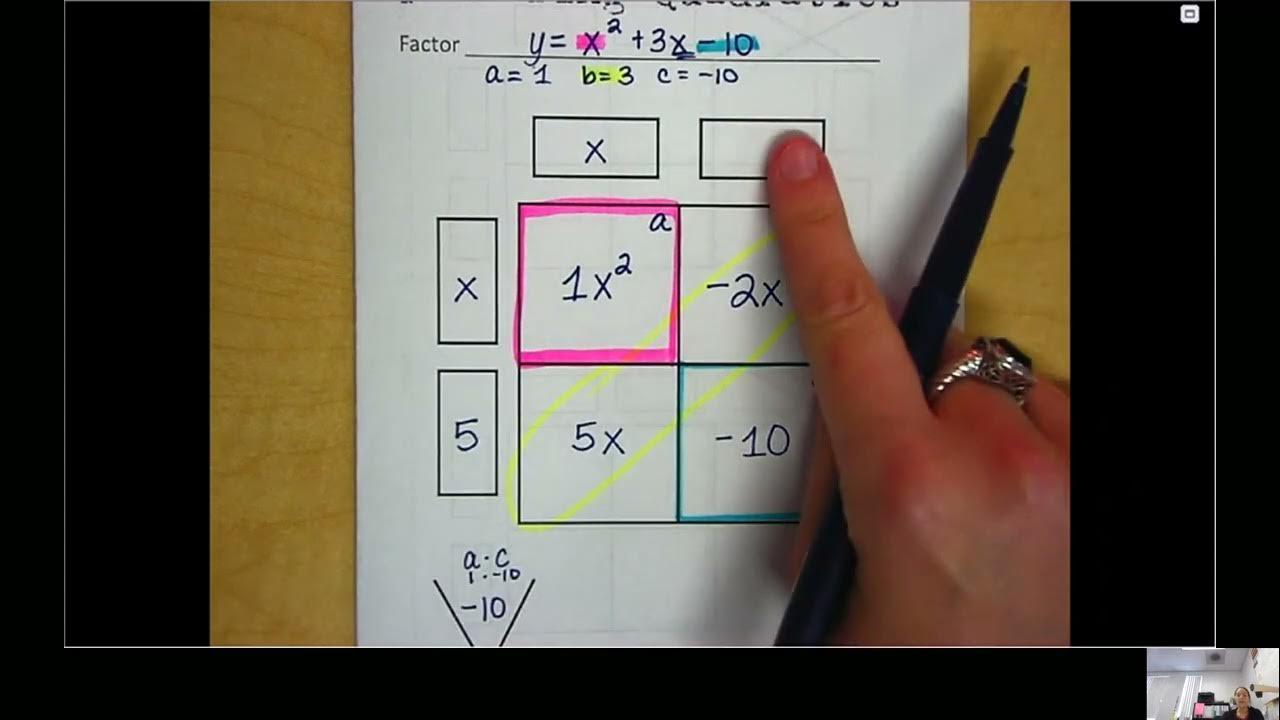 Factor y = x² + 3x - 10
a = 1 b = 3 c = -10
x
a
x 1x² -2x
5 5x -10
a · c
1 · -10
-10